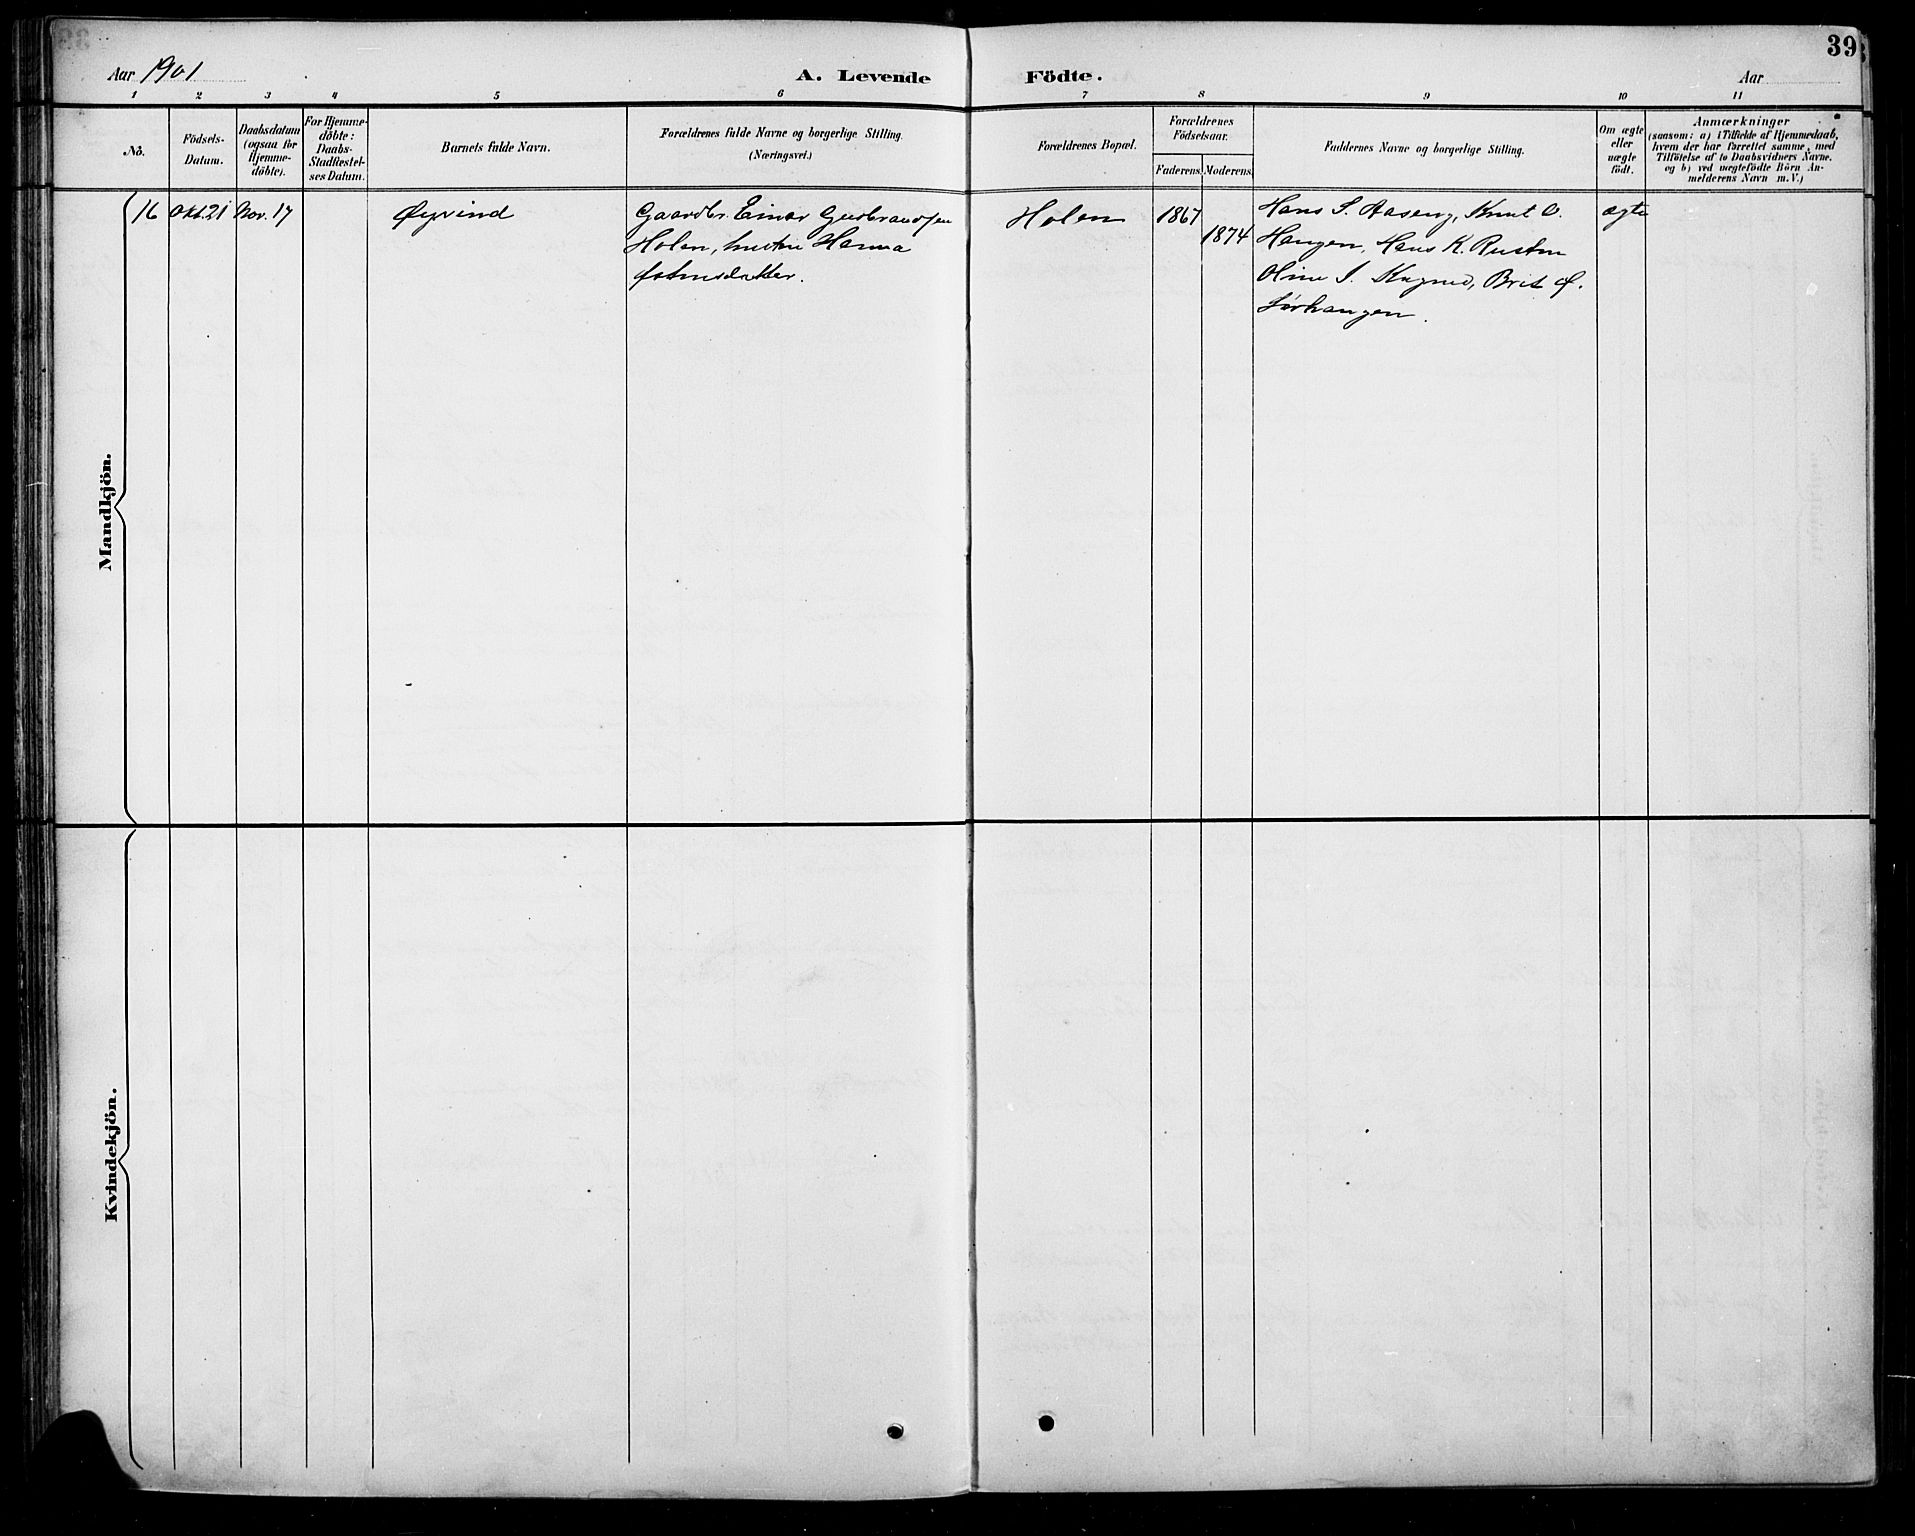 39
Aar 1901
A. Levende Födte.
Aar
1 2 3 4 5 6 7 8 9 10 11
No.
Födsels-
Datum.
Daabsdatum
(ogsaa for
Hjemme-
döbte).
For Hjemme-
döbte:
Daabs-
Stadfæstel-
ses Datum.
Barnets fulde Navn.
Forældrenes fulde Navne og borgerlige Stilling.
(Næringsvei.)
Forældrenes Bopæl.
Forældrenes
Födselsaar.
Faderens. Moderens.
Faddernes Navne og borgerlige Stilling.
Om ægte
eller
uægte
födt.
Anmærkninger
(saasom: a) i Tilfælde af Hjemmedaab,
hvem der har forrettet samme, med
Tilföielse af to Daabsvidners Navne.
og b) ved uægtefödte Börn An-
melderens Navn m.V.)
Mandkjön.
16
Okt. 21
Nov. 17
Øyvind
Gaardbr. Einar Gudbrandsen
Holen, hustru Hanna
Holen
1867
1874
Hans S. Aaseng, Knut O.
Haugen, Hans K. Rusten
Oline S. Brit Ø.
Sørhaugen.
ægte
Kvindekjön.